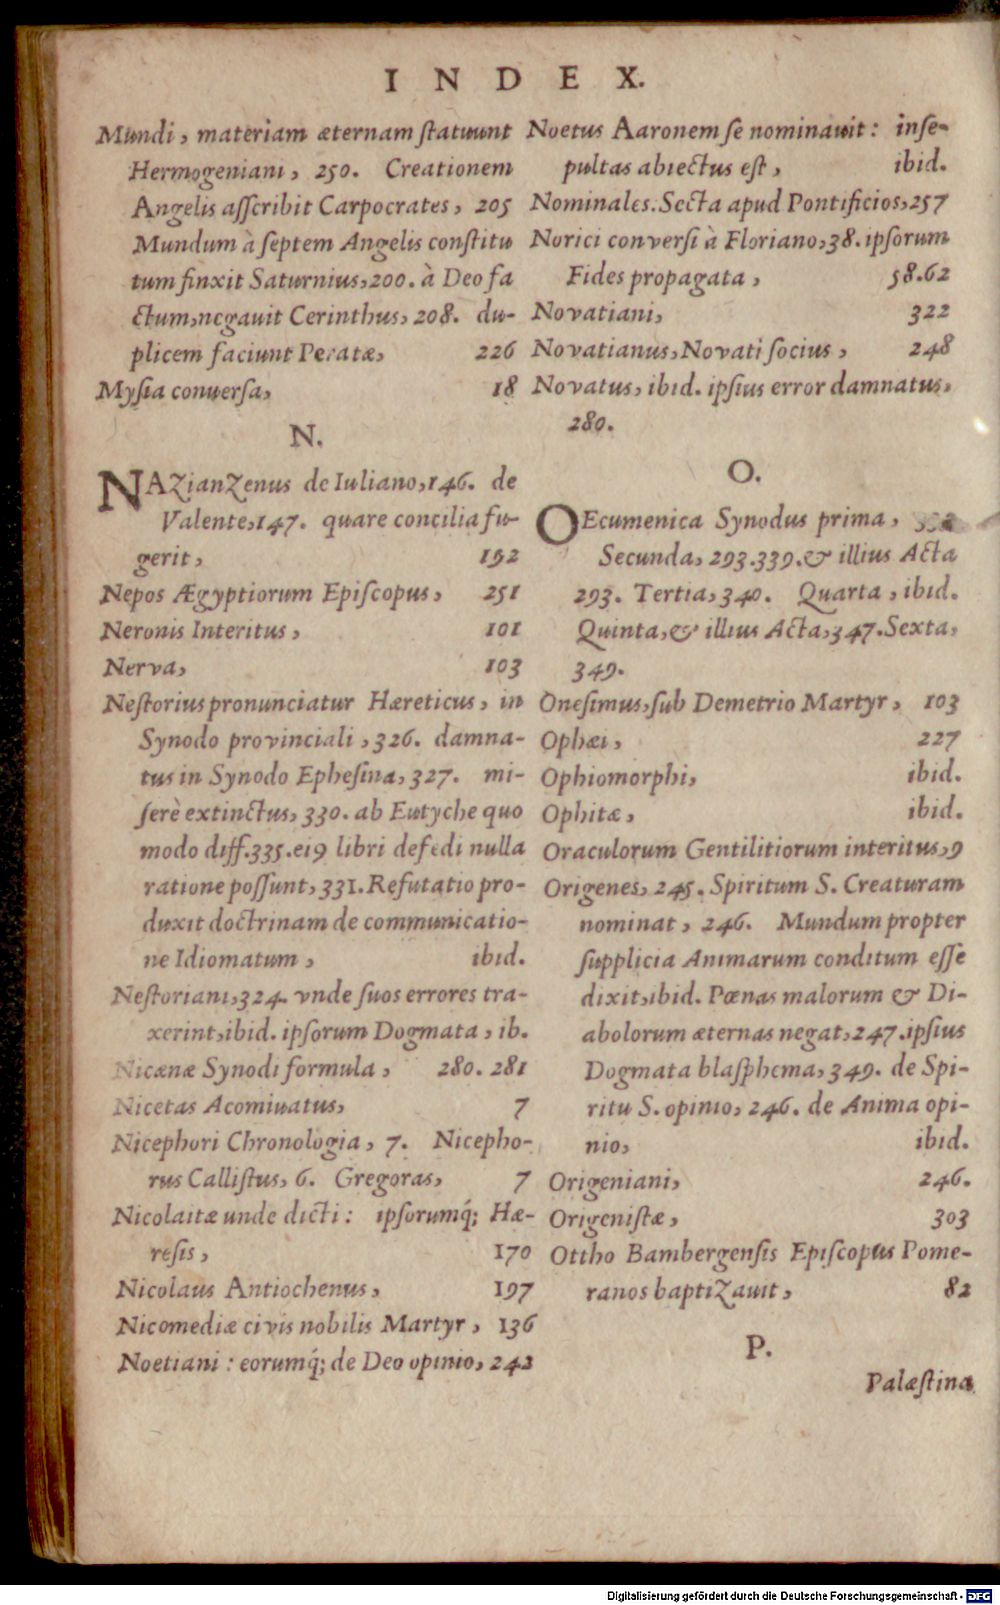 INDEX.
Mundi, materiam æternam ſtatuunt
Hermogeniani, 250. Creationem
Angelis aſſcribit Carpocrates, 205
Mundum à ſeptem Angelis conſtitu
tum finxit Saturnius, 200. à Deo fa
ctum, negauit Cerinthus, 208. du-
plicem faciunt Peratæ, 226
Myſia conuerſa, 18
N.
NAZianZenus de Iuliano, 146. de
Valente, 147. quare concilia fu-
gerit, 192
Nepos Ægyptiorum Epiſcopus, 251
Neronis Interitus, 101
Nerva, 103
Neſtorius pronunciatur Hæreticus, in
Synodo provinciali, 326. damna-
tus in Synodo Epheſina, 327. mi-
ſerè extinctus, 330. ab Eutyche quo
modo diff. 335. ei9 libri defedi nulla
ratione poſſunt, 331. Refutatio pro-
duxit doctrinam de communicatio-
ne Idiomatum, ibid.
Neſtoriani, 324. vnde ſuos errores tra-
xerint, ibid. ipſorum Dogmata, ib.
Nicænæ Synodi formula, 280. 281
Nicetas Acominatus, 7
Nicephori Chronologia, 7. Nicepho-
rus Calliſtus, 6. Gregoras, 7
Nicolaitæ unde dicti: ipſorumq́; Hæ-
reſis, 170
Nicolaus Antiochenus, 197
Nicomediæ civis nobilis Martyr, 136
Noetiani: eorumq́; de Deo opinio, 242
Noetus Aaronem ſe nominauit: inſe-
pultas abiectus eſt, ibid.
Nominales. Secta apud Pontificios, 257
Norici converſi à Floriano, 38. ipſorum
Fides propagata, 58.62
Novatiani, 322
Novatianus, Novati ſocius, 248
Novatus, ibid. ipſius error damnatus,
280.
O.
OEcumenica Synodus prima,
Secunda, 293. 339. & illius Acta
293. Tertia, 340. Quarta, ibid.
Quinta, & illius Acta, 347. Sexta,
349.
Oneſimus, ſub Demetrio Martyr, 103
Ophæi, 227
Ophiomorphi, ibid.
Ophitæ, ibid.
Oraculorum Gentilitiorum interitus, 9
Origenes, 245. Spiritum S. Creaturam
nominat, 246. Mundum propter
ſupplicia Animarum conditum eſſe
dixit, ibid. Pœnas malorum & Di-
abolorum æternas negat, 247. ipſius
Dogmata blaſphema, 349. de Spi-
ritu S. opinio, 246. de Anima opi-
nio, ibid.
Origeniani, 246.
Origeniſtæ, 303
Ottho Bambergenſis Epiſcopus Pome-
ranos baptiZauit, 82
P.
Palæſtina
Digitalisierung gefördert durch die Deutsche Forschungsgemeinschaft - DFG